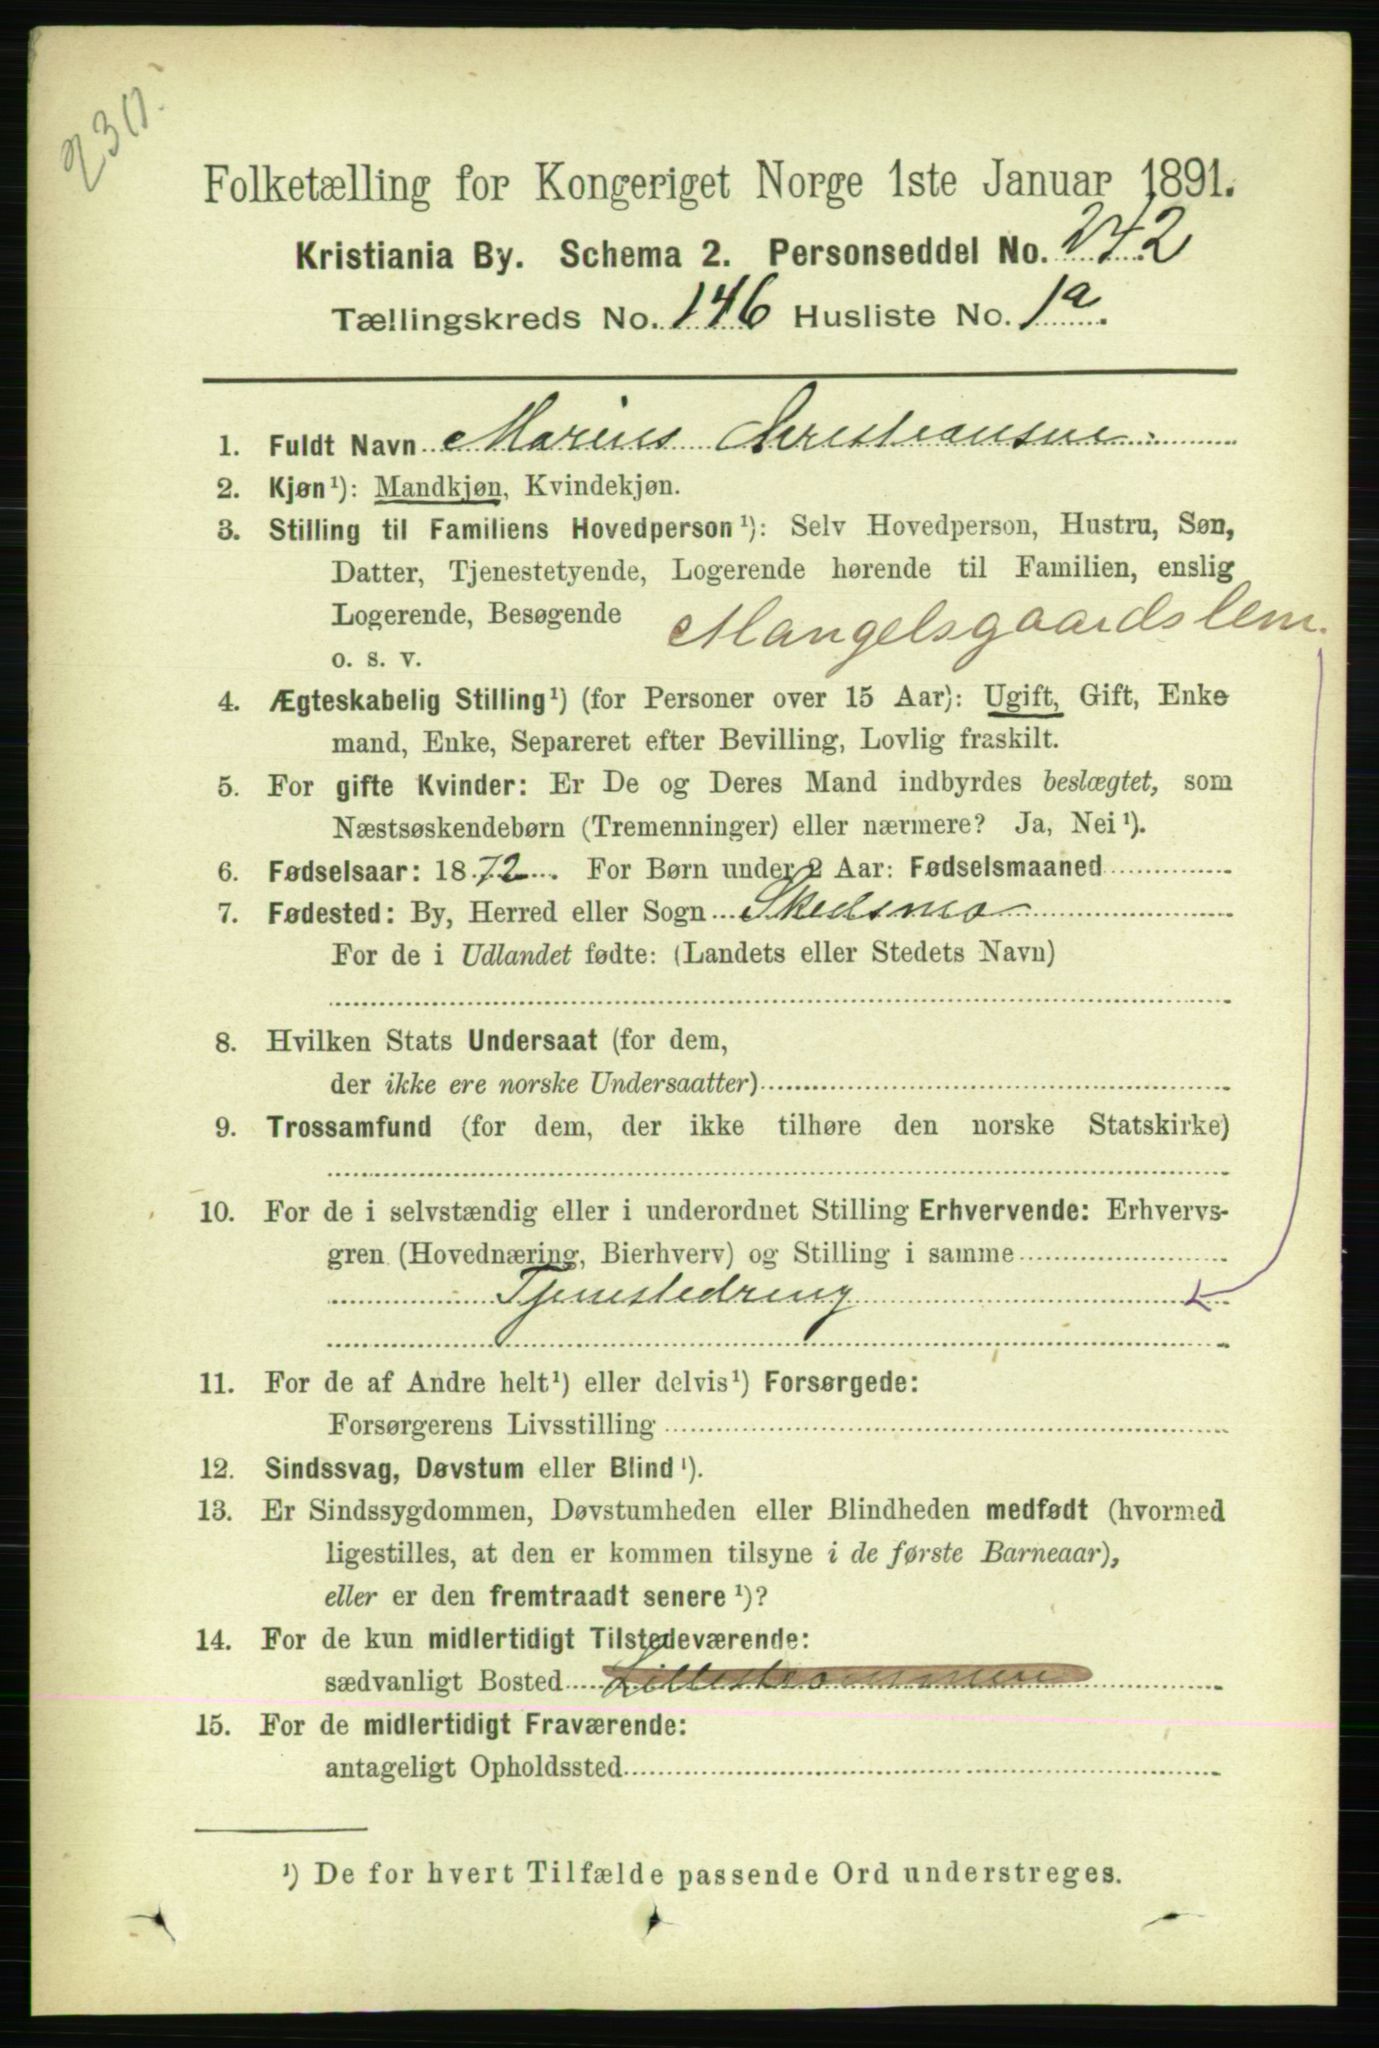 230.
Folketælling for Kongeriget Norge 1ste Januar 1891.
Kristiania By. Schema 2. Personseddel No. 242
Tællingskreds No. 146 Husliste No. 1a.
1. Fuldt Navn Marius Christiansen
2. Kjøn¹): Mandkjøn, Kvindekjøn.
3. Stilling til Familiens Hovedperson¹): Selv Hovedperson, Hustru, Søn,
Datter, Tjenestetyende, Logerende hørende til Familien, enslig
Logerende, Besøgende
o. s. v. Mangelsgaardslem.
4. Ægteskabelig Stilling¹) (for Personer over 15 Aar): Ugift, Gift, Enke
mand, Enke, Separeret efter Bevilling, Lovlig fraskilt.
5. For gifte Kvinder: Er De og Deres Mand indbyrdes beslægtet, som
Næstsøskendebørn (Tremenninger) eller nærmere? Ja, Nei¹).
6. Fødselsaar: 1872. For Børn under 2 Aar: Fødselsmaaned
7. Fødested: By, Herred eller Sogn Skedsmo
For de i Udlandet fødte: (Landets eller Stedets Navn)
8. Hvilken Stats Undersaat (for dem,
der ikke ere norske Undersaatter)
9. Trossamfund (for dem, der ikke tilhøre den norske Statskirke)
10. For de i selvstændig eller i underordnet Stilling Erhvervende: Erhvervs-
gren (Hovednæring, Bierhverv) og Stilling i samme
Tjenestedreng
11. For de af Andre helt¹) eller delvis¹) Forsørgede:
Forsørgerens Livsstilling
12. Sindssvag, Døvstum eller Blind¹).
13. Er Sindssygdommen, Døvstumheden eller Blindheden medfødt (hvormed
ligestilles, at den er kommen tilsyne i de første Barneaar),
eller er den fremtraadt senere¹)?
14. For de kun midlertidigt Tilstedeværende:
sædvanligt Bosted Lillestrømmen
15. For de midlertidigt Fraværende:
antageligt Opholdssted
¹) De for hvert Tilfælde passende Ord understreges.